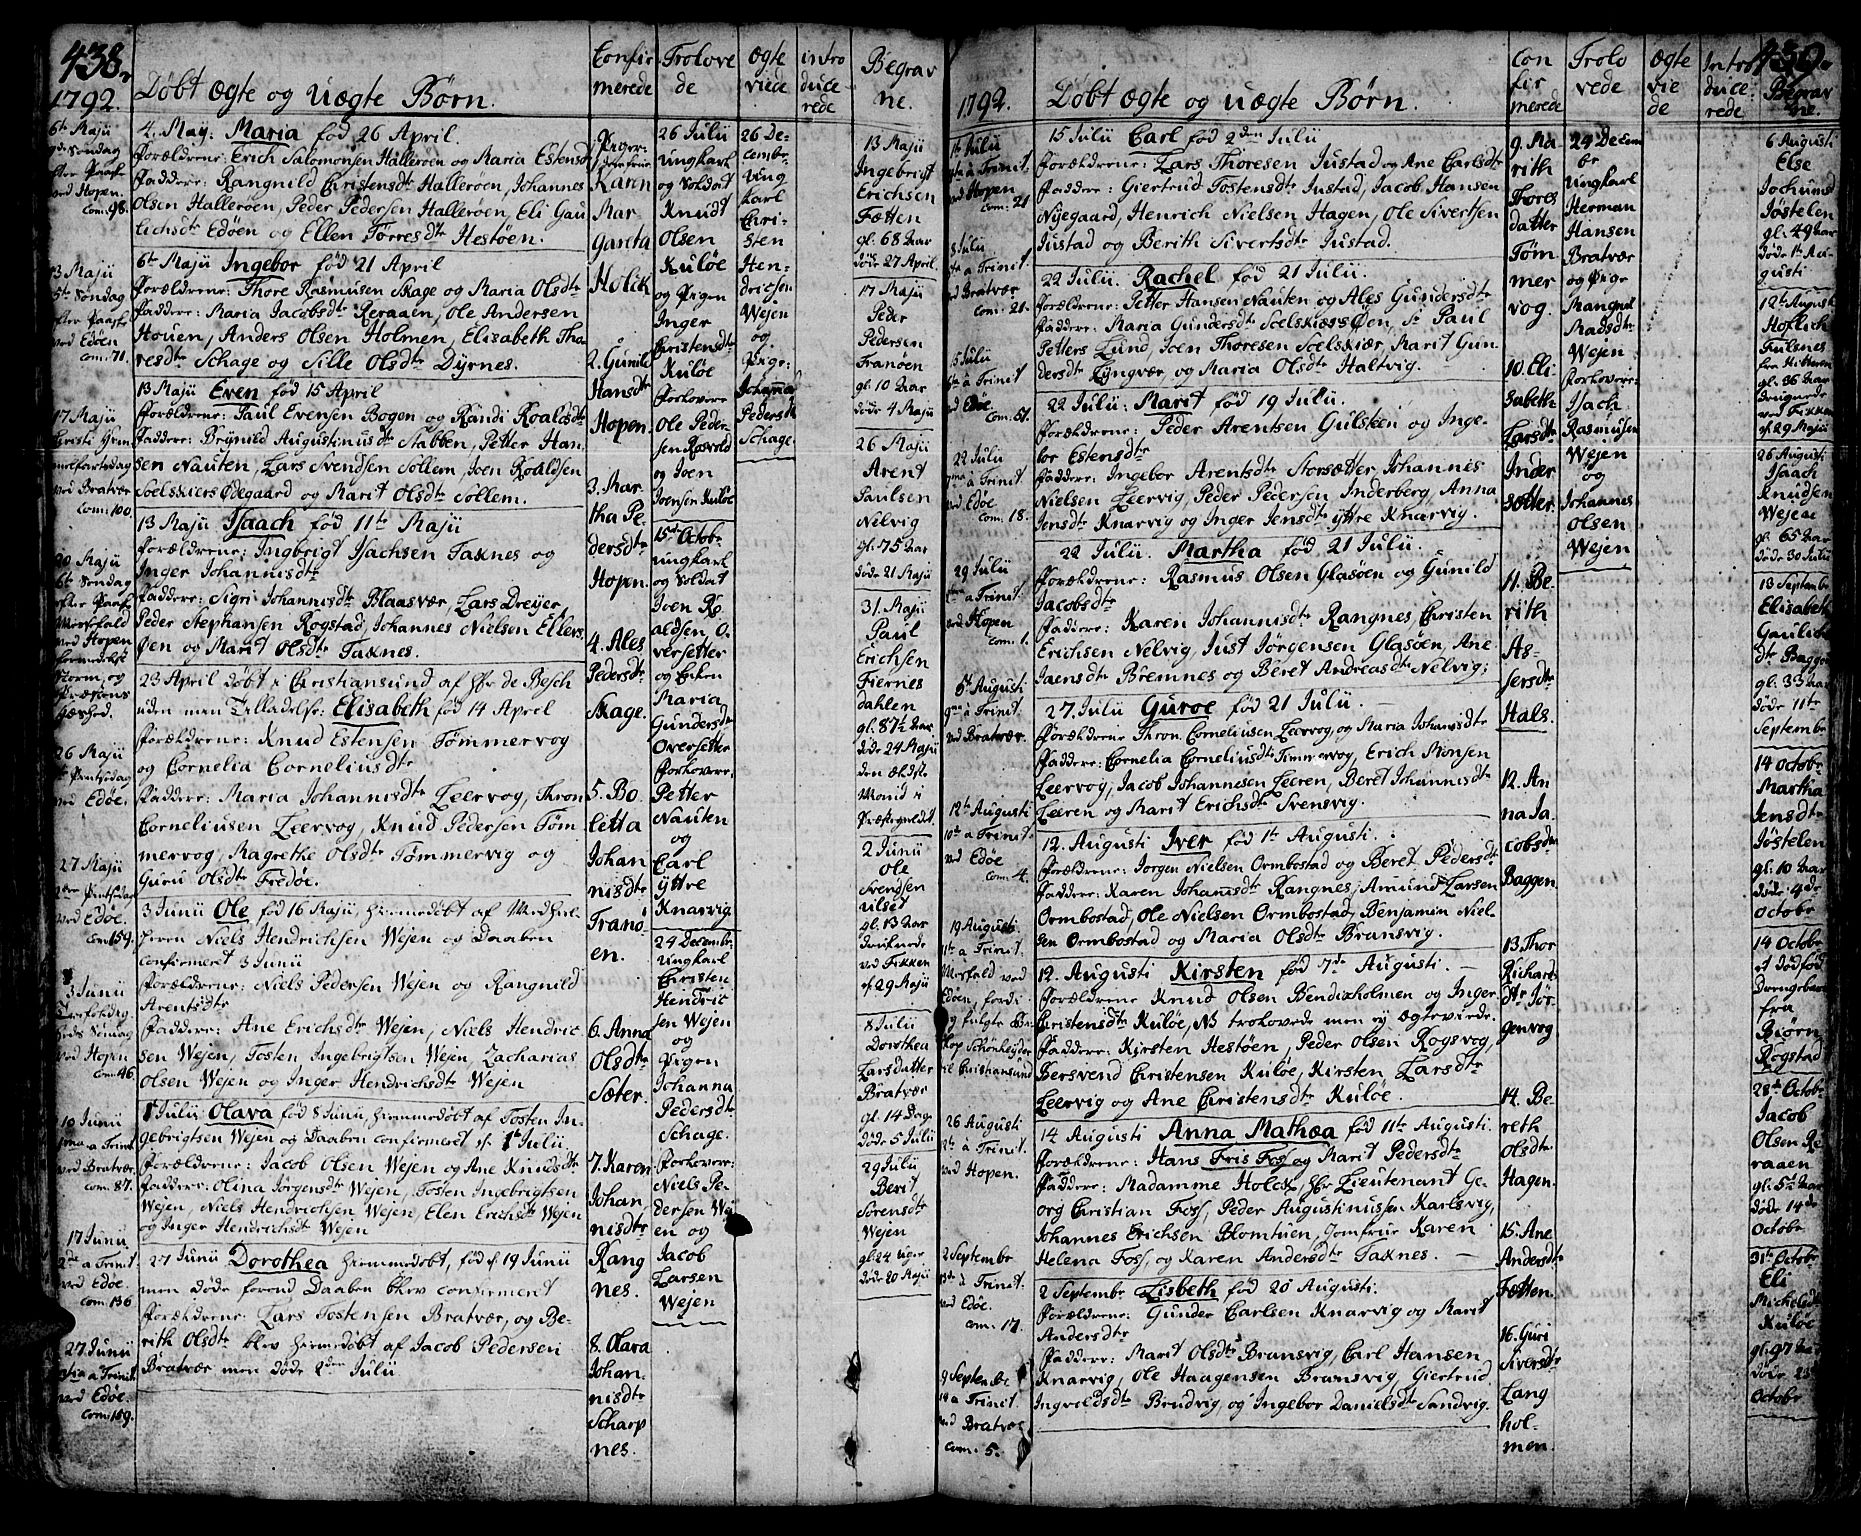 438.
1792.
Døbt ægte og uægte Børn.
Confir
merede
Trolove
de
Ægte
viede
intro
duce
rede
Begrav
ne.
6te Maji
Søndag
efter Paaske
ved Hopen.
Com: 98.
13 Maji
5te Søndag
efter Paaske
ved Edøen
Com: 71.
17 Maji
Christi Him
melfartsdag
ved Bratvær
Com: 100.
20 Maji
6te Søndag
efter Paaske
Messefald
ved Hopen
formedelst
Storm og
Præstens
26 Maji
Pintsedag
ved Edøe.
27 Maji
Pintsedag
ved Edøe.
Com: 159.
3 Junii
Trefoldig
heds Søndag
ved Hopen
Com: 46.
10 Junii
1ma a Trinit
ved Bratvær
Com: 87.
17 Junii
2de a Trinit
ved Edøe.
Com: 136
27 Junii
a Trinit
ved Edøe.
Com: 109.
4. May: Maria fød 26 April.
Forældrene: Erich Salomonsen Hallerøen og Maria Estensd
Faddere: Rangnild Christensdtr Hallerøen, Johannes
Olsen Hallerøen, Peder Pedersen Hallerøen, Eli Gau
lichsdtr Edøen og Ellen Tørresdtr Hestøen.
6te Maji Ingebor fød 21 April
Forældrene: Thore Rasmusen Skage og Maria Olsdtr
Faddere: Maria Jacobsdtr Reraaen, Ole Andersen
Houen, Anders Olsen Holmen, Elisabeth Tho
resdtr Schage og Sille Olsdtr Dyrnes.
13 Maji Even fød 15 April
Forældrene: Paul Evensen Bogen og Randi Roaldsdtr
Faddere: Brynild Augustinusdtr Stabben, Petter Han
sen Nauten, Lars Svendsen Sollem, Joen Roaldsen
Soelskiers Ødegaard og Marit Olsdtr Sollem.
13 Maji Isaach fød 11te Maji
Forældrene: Ingbrigt Isachsen Taxnes og
Inger Johannisdtr
Faddere: Sigri Johannisdtr Blaasvær, Lars Dreyer,
Peder Stephansen Rogstad, Johannes Nielsen Ellers
Øen og Marit Olsdtr Taxnes.
23 April døbt i Christiansund af Hr de Besch
uden men Tilladelse: Elisabeth fød 14 April
Forældrene: Knud Estensen Tømmervog
og Cornelia Corneliusdtr
Faddere: Maria Johannisdtr Leervog, Thron
Corneliusen Leervog, Knud Pedersen Tøm
mervog, Magrethe Olsdtr Tømmervig og
Guru Olsdtr Fredøe.
3 Junii Ole fød 16 Maji, hjemmedøbt af Medhiel
peren Niels Hendrichsen Wejen og Daaben
confirmeret 3 Junii
Forældrene: Niels Pedersen Wejen og Rangnild
Arentsdtr
Faddere: Ane Erichsdtr Wejen, Niels Hendric
sen Wejen, Tosten Ingebrigtsen Wejen, Zacharias
Olsen Wejen og Inger Hendrichsdtr Wejen
1te Julii Olava fød 8 Junii, hjemmedøbt af Tosten In
gebrigtsen Wejen og Daaben confirmeret d. 1te Julii
Forældrene: Jacob Olsen Wejen og Ane Knudsdtr
Faddere: Olina Jørgensdtr Wejen, Tosten Ingebrigtsen
Wejen, Niels Hendrichsen Wejen, Elen Erichsdtr Wejen
og Inger Hendrichsdtr Wejen
27 Junii Dorothea hjemmedøbt, fød d. 19 Junii
men døde forend Daaben blev confirmert
Forældrene: Lars Tostensen Bratvær, og Be
rith Olsdtr blev hjemedøbt af Jacob Pedersen
Bratvær men døde 2den Julii
Piger:
1. Jomfrue
Karen
Mar
gareta
Holck
2. Gunil
Hansdtr
Hopen.
3. Mar
tha Pe
dersdtr
Hopen.
4. Ales
Pedersdtr
Skage.
5. Bo
letta
Johan
nisdtr
Franø
en.
6. Anna
Olsdtr
Sæter.
7. Karen
Johan
nisdtr
Rang
nes.
8. Olara
Johan
nisdtr
Scharp
nes.
26 Julii
Ungkarl
og Soldat
Knudt
Olsen
Kuløe
og Pigen
Inger
Christensdtr
Kuløe
Forlovere
Ole Peder
sen Rosvold
og Joen
Joensen Kuløe
15de Octobr
Ungkarl
og Soldat
Joen Ro
aldsen, O
versetter
og Enken
Maria
Gundersdtr
Oversetter
Forlovere:
Petter
Nauten
og
Carl
yttre
Knarvig
24 Decembr
Ungkarl
Christen
Hendric
sen Wejen
og
Pigen
Johanna
Pedersdtr
Schage.
Forlovere:
Niels Pe
dersen Wej
en og
Jacob
Larsen
Wejen
26 De-
cembr
Ung
Karl
Chri-
sten
Hen-
drichsen
Wejen
og
Pige:
Johanna
Pedersdtr
Schage
13 Maji
Ingebrigt
Erichsen
Fætten
gl. 68 Aar
døde 27 April.
17 Maji
Peder
Pedersen
Franøen
gl. 10 Aar
døde 4 Maji
26 Maji
Arent
Paulsen
Nelvig
gl. 75 Aar
døde 21 Maji
31. Maji
Paul
Erichsen
Fiernes
dahlen
gl. 87½ Aar
døde 24 Maji
den ældste
Mand i
Præstegieldet.
2 Junii
Ole
Svendsen
Ulset
gl. 13 Aar
druknede
ved Fikken
d. 29 Maji
8 Julii
Dorothea
Larsdatter
Bratvær
gl. 14 Dage
døde 5 Julii
29 Julii
Berit
Sørensdtr
Wejen
gl. 24 Uger
døde 20 Maji
439.
1792.
Døbt ægte og uægte Børn.
Con
fir
merede
Trolo
vede
Ægte
vie
de
Intro
duce
rede
Begrav
ne.
1te Julii
a Trinit
ved Hopen
Com: 21
8 Julii
a Trinit.
ved Bratvær
Com: 21.
15 Julii
6te a Trinit
ved Edøe.
Com: 51.
22 Julii
7ma a Trinit
ved Edøe
Com: 18.
29 Julii
a Trinit.
ved Hopen
Com: 1.
5te Augusti
9na a Trinit.
ved Bratvær.
12te Augusti
10de a Trinit
ved Edøe
Com: 4.
19 Augusti
11te a Trinit
Messfald ved
Edøen, fordi
jeg fulgte Bi
skop Schønheyder
til Christiansund
26 Augusti
12te a Trinit.
ved Hopen.
2 September
13de a Trinit.
ved Edøe.
Com: 17.
9 Septembr
14 a Trinit
ved Bratvær
Com: 5.
15 Julii Carl fød 2den Julii
Forældrene: Lars Thoresen Justad og Ane Carlsdtr
Faddere: Giertrud Tostensdtr Justad, Jacob Hansen
Nyegaard, Henrich Nielsen Hagen, Ole Sivertsen
Justad og Berith Sivertsdtr Justad.
22 Julii. Rachel fød 21 Julii.
Forældrene: Petter Hansen Nauten og Ales Gundersdtr
Faddere: Maria Gundersdtr Soelskiærs Øen, Sr Paul
Petters Lund, Joen Thoresen Soelskiær, Marit Gun
dersdtr Lyngvær, og Maria Olsdtr Haltvig.
22 Julii: Marit fød 19 Julii.
Forældrene: Peder Arentsen Gulsteen og Inge-
bor Estensdtr
Faddere: Ingebor Arentsdtr Storsætter, Johannes
Nielsen Leervig, Peder Pedersen Inderberg, Anna
Jensdtr Knarvig og Inger Jensdtr yttre Knarvig.
22 Julii. Martha fød 21 Julii.
Forældrene: Rasmus Olsen Glasøen og Gunild
Jacobsdtr
Faddere: Karen Johannisdtr Rangnes, Christen
Erichsen Nelvig, Just Jørgensen Glasøen, Ane
Jaensdtr Bremnes og Beret Andreasdtr Nelvig;
27 Julii Guroe fød 21 Julii.
Forældrene Thron Corneliusen Leervog, og Maria Johannisdtr
Faddere: Cornelia Corneliusdtr Timmervog, Erich Monsen
Leervog, Jacob Johannesen Leeren, Beret Johannisdtr
Leeren og Marit Erichsdtr Svensvig.
12. Augusti Iver fød 1te Augusti.
Forældrene: Jørgen Nielsen Ormbostad og Beret Pedersdtr
Faddere: Karen Johannsdtr Rangnes, Amund Larsen
Ormbostad, Ole Nielsen Ormbostad, Benjamin Niel-
sen Ormbostad og Maria Olsdtr Bransvig.
12. Augusti Kirsten fød 7de Augusti.
Forældrene Knud Olsen Bendixholmen og Inger
Christensdtr Kuløe, NB trolovede men ej Ægteviede.
Faddere: Kirsten Hestøen, Peder Olsen Rogsvog,
Bersvend Christensen Kuløe, Kirsten Larsdtr
Leervig og Ane Christensdtr Kuløe.
14 Augusti Anna Mathea fød 11te Augusti.
Forældrene: Hans Friis Foss og Marit Pedersdtr
Faddere: Madamme Holck, Hr Lieutenant Ge-
org Christian Foss, Peder Augustinussen Karlsvig,
Johannes Erichsen Blomtuen, Jomfrue Karen
Helena Foss, og Karen Andersdtr Taxnes.
2 Septembr Lisbeth fød 20 Augusti.
Forældrene: Gunder Carlsen Knarvig og Marit
Andersdtr
Faddere: Marit Olsdtr Bransvig, Carl Hansen
Knarvig, Ole Haagensen Bransvig, Giertrud
Ingveldsdtr Brudvig, og Ingebor Danielsdtr Sandvig.
9. Ma
rith
Thores
datter
Tøm
mer
vog.
10. Eli-
sabeth
Larsdtr
Inder
sætter.
11. Be-
rith
As-
sersdtr
Hals.
12. An
na Ja
cobsdtr
Baggen.
13. Thor
Richard
dtr Jør
genvog
14. Be-
reth
Olsdtr
Hagen.
15. Ane
Andersdtr
Fætten.
16. Guri
Siversdtr
Lang
hol-
men.
24 Decem
br
Ungkarl
Herman
Hansen
Bratvær
og Pige
Mangnil
Madsdtr
Wejen
Forlovere:
Isach
Rasmusen
Wejen
og
Johannes
Olsen
Wejen
6 Augusti
Else
Jochumsd
Jøstelen
gl. 49 Aar
døde 1te Au-
gusti
12te Augusti
Hoflich
Fulsnes
fra Hitteren
gl. 36 Aar
druknede
ved Fikken
d. 29 Maji
26 Augusti
Isaach
Knudsen
Wejen
gl. 65 Aar
døde 30 Julii
13 Septembr
Elisabeth
Gaulichs
dtr Baggen
gl. 33 Aar
døde 11te
Septembr
14 Octobr
Martha
Jensdtr
Jøstelen
gl. 10 Aar
døde 4de
Octobr
14 Octobr
et dødfød
Drengebarn
fra
Biørn
Rogstad
28de Octobr
Jacob
Olsen Re
raaen
gl. 5½ Aar
døde 14de
Octobr
31te Octobr
Eli
Michelsdtr
Kuløe
gl. 97 Aar
døde 25
Octobr